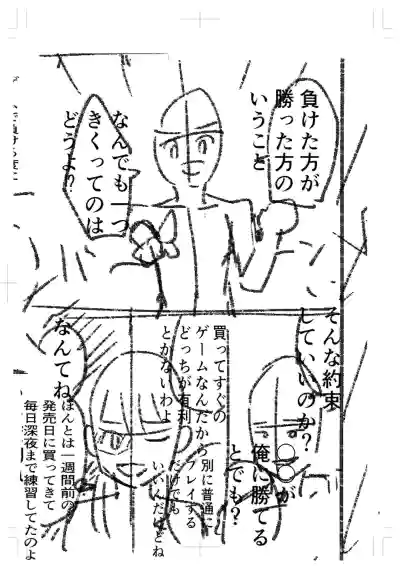 負けた方が
勝った方の
いうこと
なんでも一つ
きくってのは
どうよ？
そんな約束
していいのか？
〇〇が
俺に勝てる
とでも？
買ってすぐの
ゲームなんだから
どっちが有利
とかないわよ
別に普通に
プレイする
だけでも
いいんだけどね
なんてね
ほんとは一週間前の
発売日に買ってきて
毎日深夜まで練習してたのよ